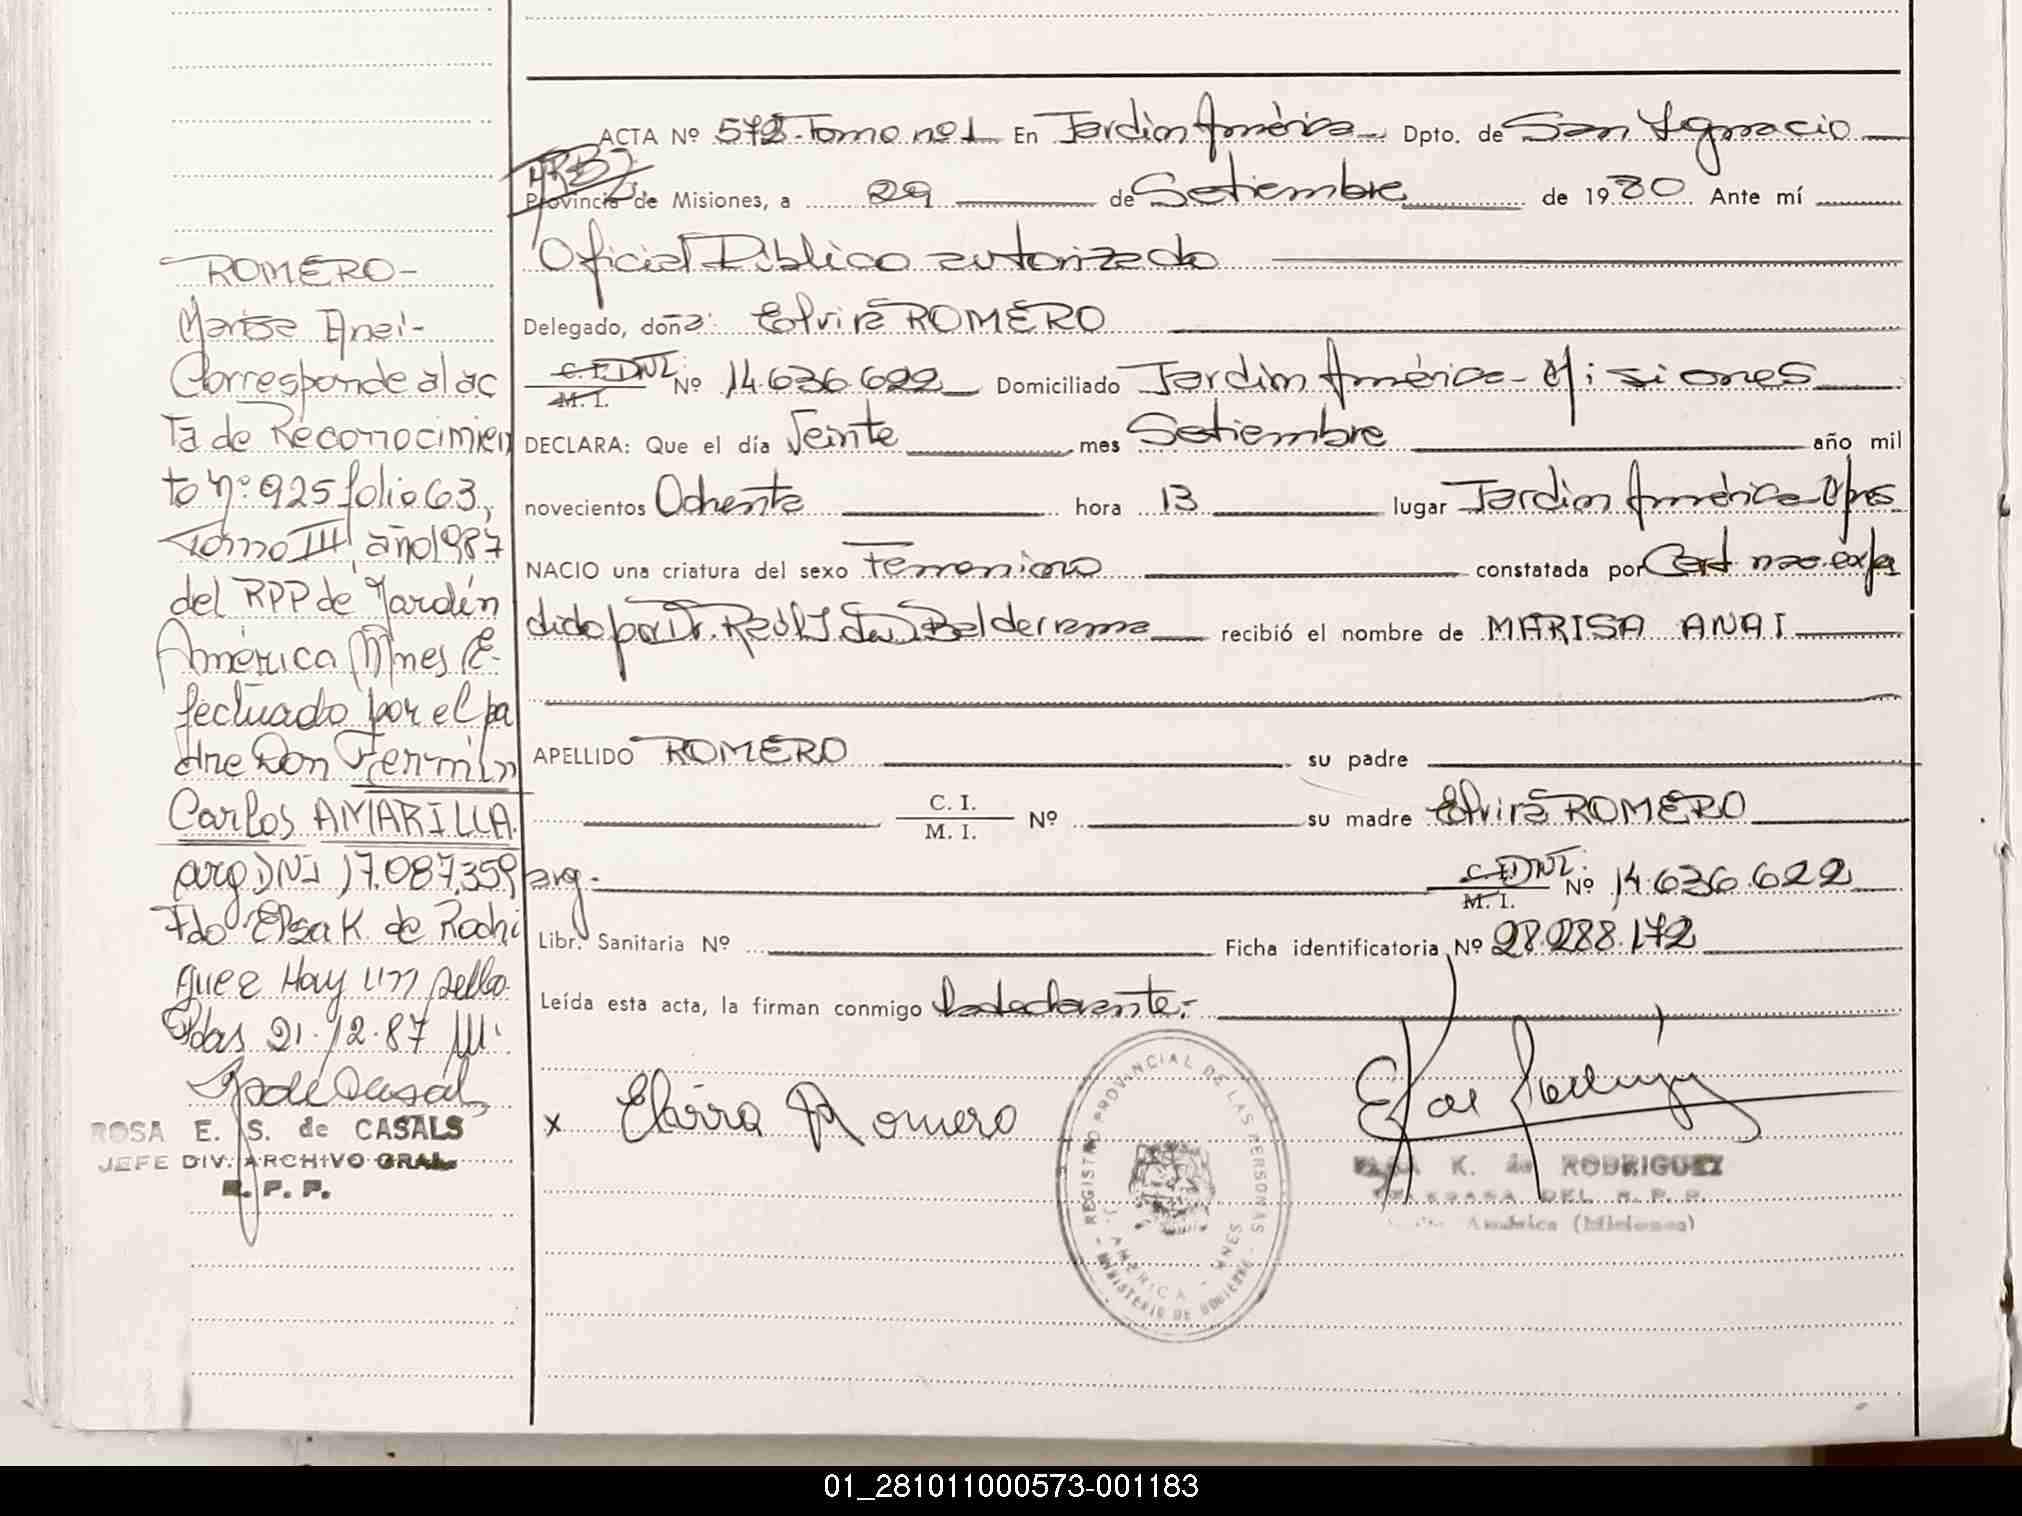 ACTA Nº 572 Tomo nº 1 En Jardin América Dpto. de San Ignacio
Provincia de Misiones, a 29 de Setiembre de 1980 Ante mí
Oficial Público autorizado
Delegado, doña: Elvira ROMERO
C.I. DNI: M. I. Nº 14.636.622 Domiciliado Jardin América - Misiones
DECLARA: Que el día Veinte mes Setiembre año mil
novecientos Ochenta hora 13 lugar Jardin América Mnes
NACIO una criatura del sexo Femenino constatada por Cert nac. expe
dido por Dr. Raúl Balderrama recibió el nombre de MARISA ANAI
APELLIDO ROMERO su padre
C. I. M. I. Nº su madre Elvira ROMERO
arg. C.I. DNI: M. I. Nº 14.636.622
Libr. Sanitaria Nº Ficha identificatoria Nº 28.288.172
Leída esta acta, la firman conmigo la declarante.-
x Elvira Romero
REGISTRO PROVINCIAL DE LAS PERSONAS
J. AMERICA - MNES
MINISTERIO DE GOBIERNO
K. de RODRIGUEZ
DEL R. P. P.
América (Misiones)
ROMERO-
Marisa Anai-
Corresponde al ac
ta de Reconocimien
to Nº 925 folio 63,
Tomo III, año 1987
del RPP de Jardín
América Mnes E-
fectuado por el pa
dre Don Fermín
Carlos AMARILLA
arg DNI 17.087.359
Fdo Elsa K. de Rodri
guez Hay un sello
Pdas 21-12-87
ROSA E. S. de CASALS
JEFE DIV. ARCHIVO GRAL.
R. P. P.
01_281011000573-001183